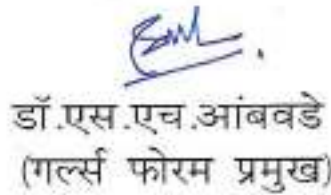 डॉ.एस.एच.आंबवडे
(गर्ल्स फोरम प्रमुख)